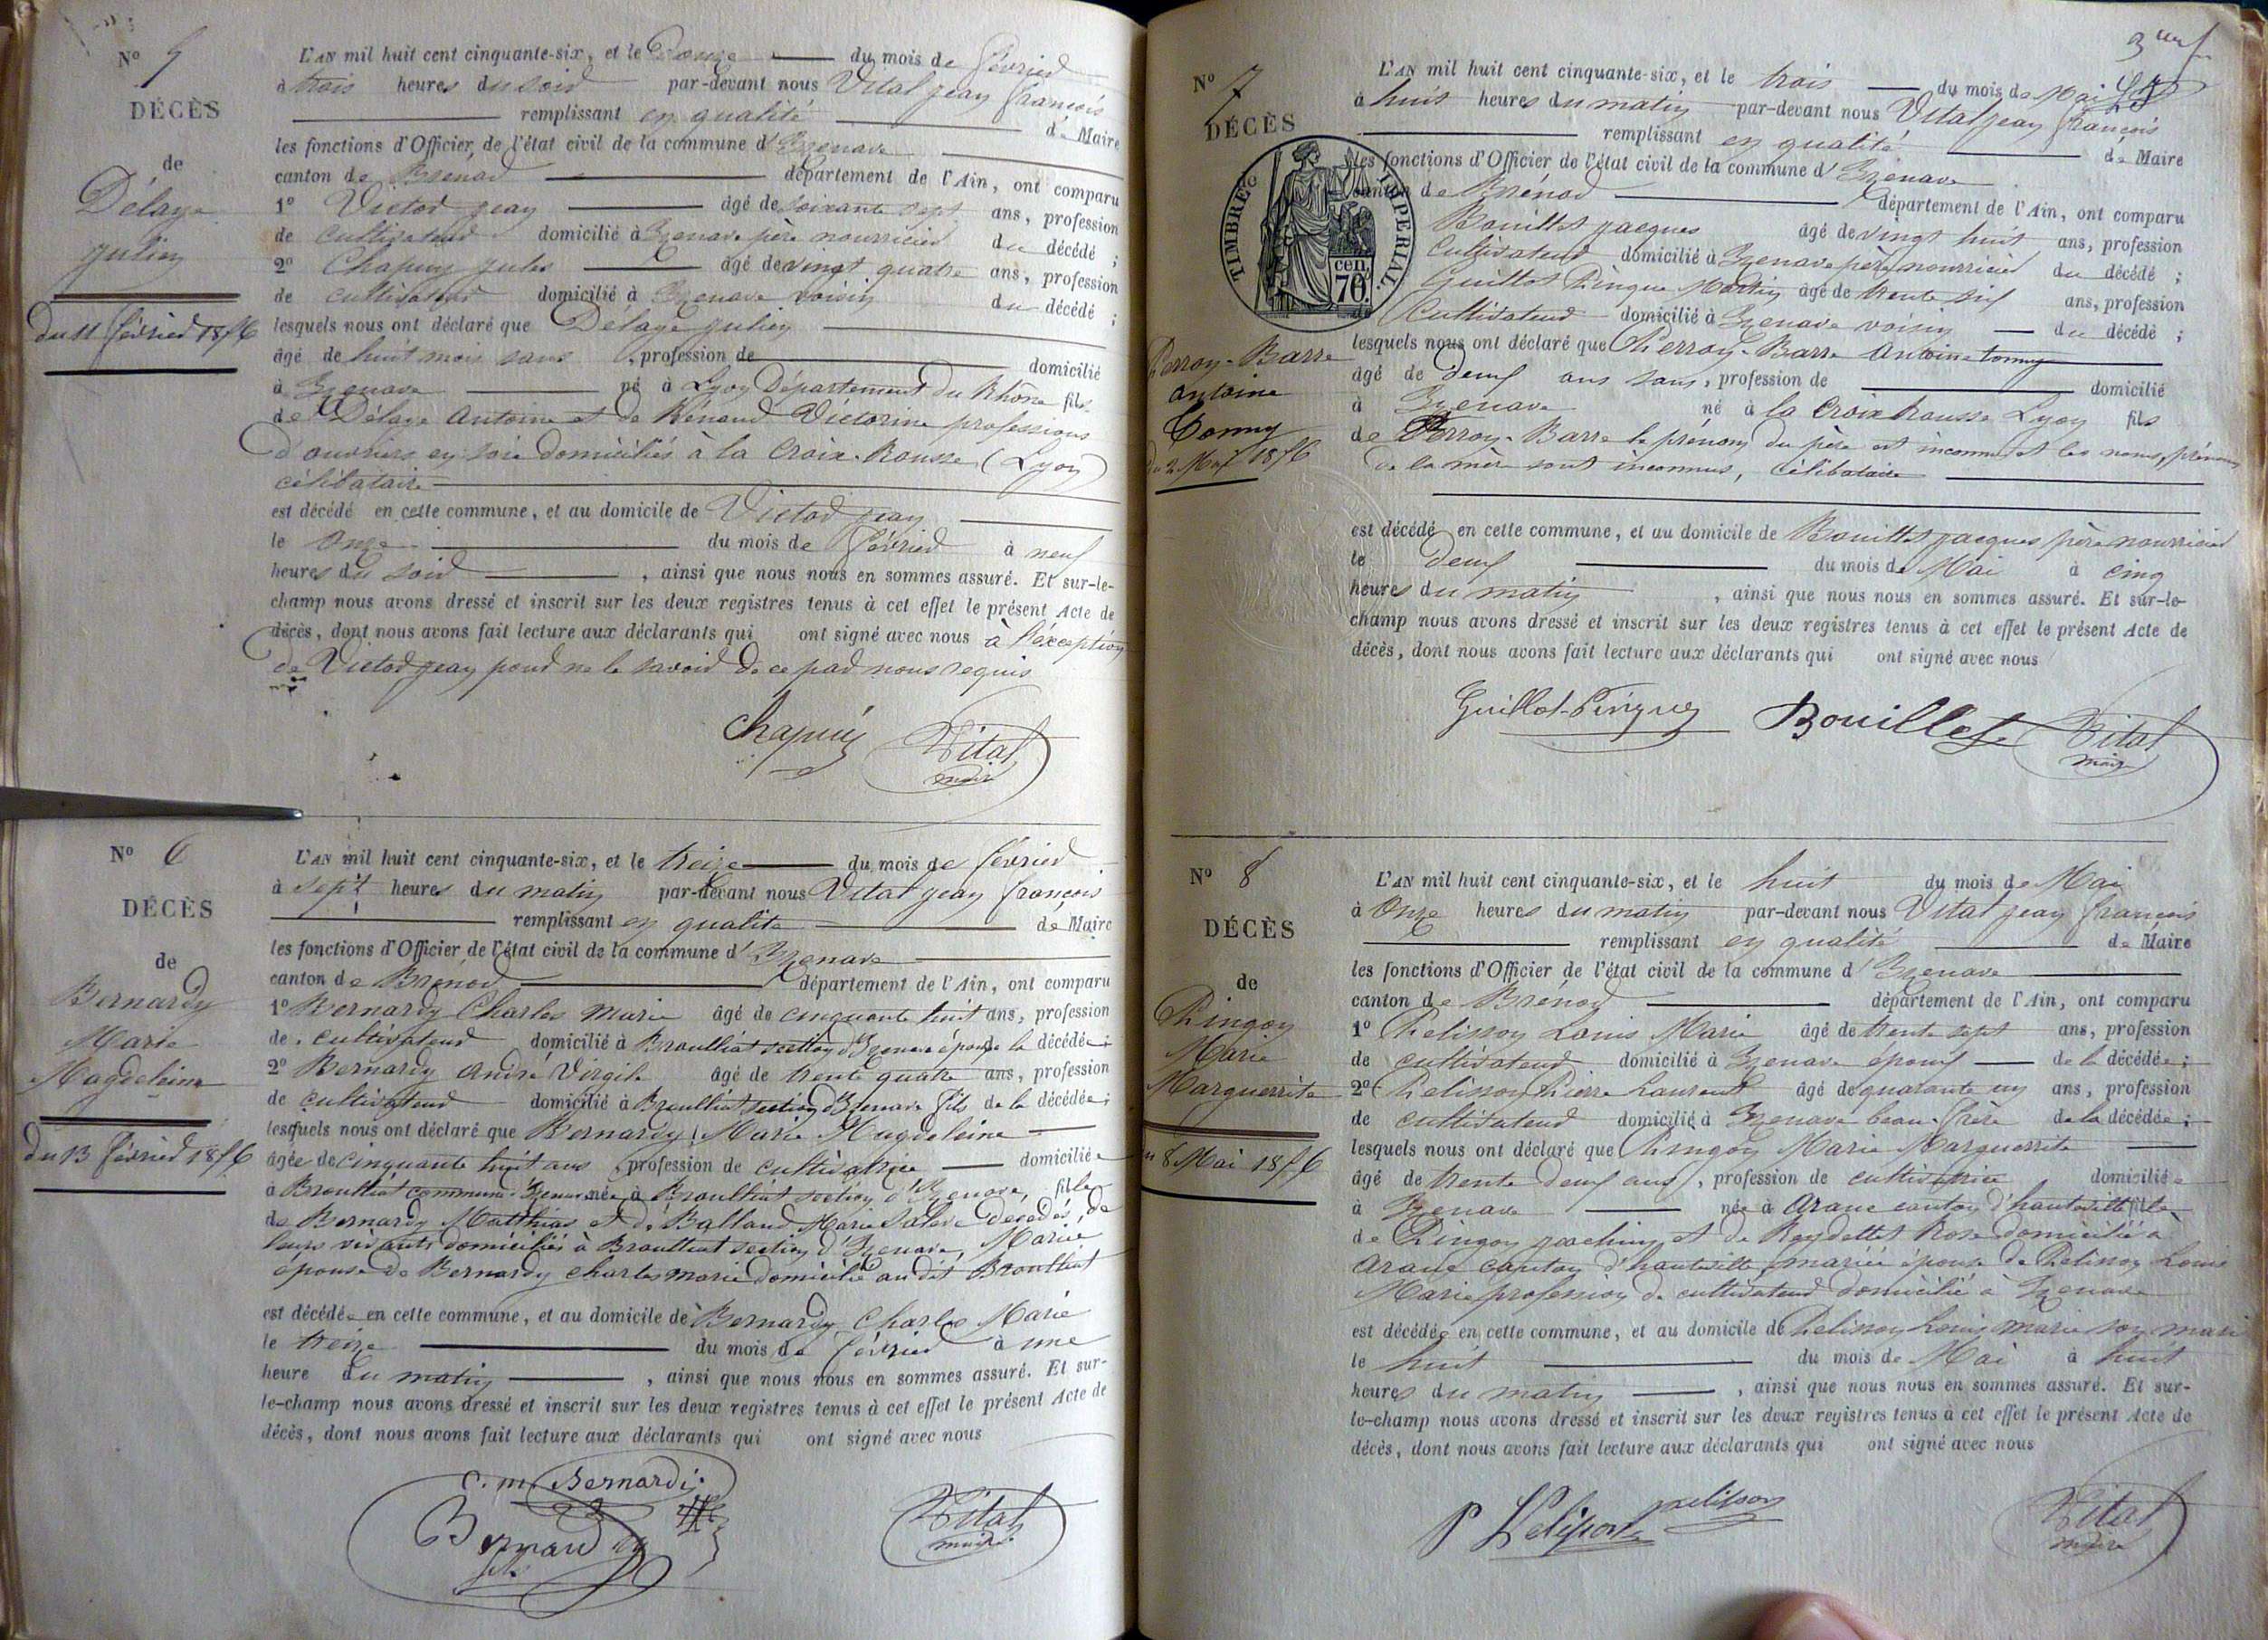 N° 5
DÉCÈS
de
Délage
julien
du 11 février 1856
L'AN mil huit cent cinquante-six, et le Douze du mois de février
à trois heures du soir par-devant nous Vital jean françois
remplissant en qualité de Maire
les fonctions d'Officier de l'état civil de la commune d'Izenave
canton de Brenod département de l'Ain, ont comparu
1° Victor jean âgé de soixante sept ans, profession
de cultivateur domicilié à Izenave père nourricier du décédé ;
2° Chapuy jules âgé de vingt quatre ans, profession
de cultivateur domicilié à Izenave voisin du décédé ;
lesquels nous ont déclaré que Délage julien
âgé de huit mois sans , profession de domicilié
à Izenave né à Lyon Département du Rhône fils
de Délage Antoine et de Rénaud Victorine professions
d'ouvriers en soie domiciliés à la Croix-Rousse (Lyon)
célibataire
est décédé en cette commune, et au domicile de Victor jean
le onze du mois de février à neuf
heures du soir , ainsi que nous nous en sommes assuré. Et sur-le-
champ nous avons dressé et inscrit sur les deux registres tenus à cet effet le présent Acte de
décès, dont nous avons fait lecture aux déclarants qui ont signé avec nous à l'éxception
de Victor jean pour ne le savoir de ce par nous requis
Chapuy Vital
maire
N° 6
DÉCÈS
de
Bernardy
Marie
Magdeleine
du 13 février 1856
L'AN mil huit cent cinquante-six, et le treize du mois de février
à sept heures du matin par-devant nous Vital jean françois
remplissant en qualité de Maire
les fonctions d'Officier de l'état civil de la commune d'Izenave
canton de Brénod département de l'Ain, ont comparu
1° Bernardy Charles Marie âgé de cinquante huit ans, profession
de cultivateur domicilié à Broulliat section d'Izenave époux de la décédée ;
2° Bernardy André Virgile âgé de trente quatre ans, profession
de cultivateur domicilié à Broulliat section d'Izenave fils de la décédée ;
lesquels nous ont déclaré que Bernardy Marie Magdeleine
âgée de cinquante huit ans , profession de cultivatrice domiciliée
à Broulliat commune d'Izenave née à Broulliat section d'Izenave, fille
de Bernardy Matthias et de Balland Marie décédés, de
leurs vivants domiciliés à Broulliat section d'Izenave, Mariée
épouse de Bernardy Charles marie domicilié au dit Broulliat
est décédée en cette commune, et au domicile de Bernardy Charles Marie
le treize du mois de février à une
heure du matin , ainsi que nous nous en sommes assuré. Et sur-
le-champ nous avons dressé et inscrit sur les deux registres tenus à cet effet le présent Acte de
décès, dont nous avons fait lecture aux déclarants qui ont signé avec nous
C. m. Bernardi
Bernardy Vital
fils maire
N° 7
DÉCÈS
TIMBRE IMPERIAL
70 cen.
Perroy-Barre
antoine
Tonny
du 2 Mai 1856
L'AN mil huit cent cinquante-six, et le trois du mois de Mai
à huit heures du matin par-devant nous Vital jean françois
remplissant en qualité de Maire
les fonctions d'Officier de l'état civil de la commune d'Izenave
canton de Brénod département de l'Ain, ont comparu
Bouillet jacques âgé de vingt huit ans, profession
Cultivateur domicilié à Izenave père nourricier du décédé ;
Guillot Pingue Martin âgé de trente six ans, profession
Cultivateur domicilié à Izenave voisin du décédé ;
lesquels nous ont déclaré que Perroy-Barre Antoine tonny
âgé de deux ans sans, profession de domicilié
à Izenave né à la Croix housse Lyon fils
de Perroy-Barre le prénom du père est inconnu et les noms, prénoms
de la mère sont inconnus, célibataire
est décédé en cette commune, et au domicile de Bouillet jacques père nourricier
le deux du mois de Mai à cinq
heures du matin , ainsi que nous nous en sommes assuré. Et sur-le-
champ nous avons dressé et inscrit sur les deux registres tenus à cet effet le présent Acte de
décès, dont nous avons fait lecture aux déclarants qui ont signé avec nous
Guillot-Pingue Bouillet Vital
maire
N° 8
DÉCÈS
de
Pingon
Marie
Marguerrite
8 Mai 1856
L'AN mil huit cent cinquante-six, et le huit du mois de Mai
à Onze heures du matin par-devant nous Vital jean françois
remplissant en qualité de Maire
les fonctions d'Officier de l'état civil de la commune d'Izenave
canton de Brénod département de l'Ain, ont comparu
1° Pelisson Louis Marie âgé de trente sept ans, profession
de cultivateur domicilié à Izenave époux de la décédée ;
2° Pelisson Pierre Laurent âgé de quarante un ans, profession
de cultivateur domicilié à Izenave beau-frère de la décédée ;
lesquels nous ont déclaré que Pingon Marie Marguerrite
âgé de trente deux ans, profession de cultivatrice domiciliée
à Izenave née à Aranc canton d'hauteville fille
de Pingon joachim et de Reydellet Rose domiciliée à
Aranc canton d'hauteville mariée épouse de Pelisson Louis
Marie profession de cultivateur domicilié à Izenave
est décédée en cette commune, et au domicile de Pelisson Louis marie son mari
le huit du mois de Mai à huit
heures du matin , ainsi que nous nous en sommes assuré. Et sur-
le-champ nous avons dressé et inscrit sur les deux registres tenus à cet effet le présent Acte de
décès, dont nous avons fait lecture aux déclarants qui ont signé avec nous
P Pelisson pelisson Vital
maire